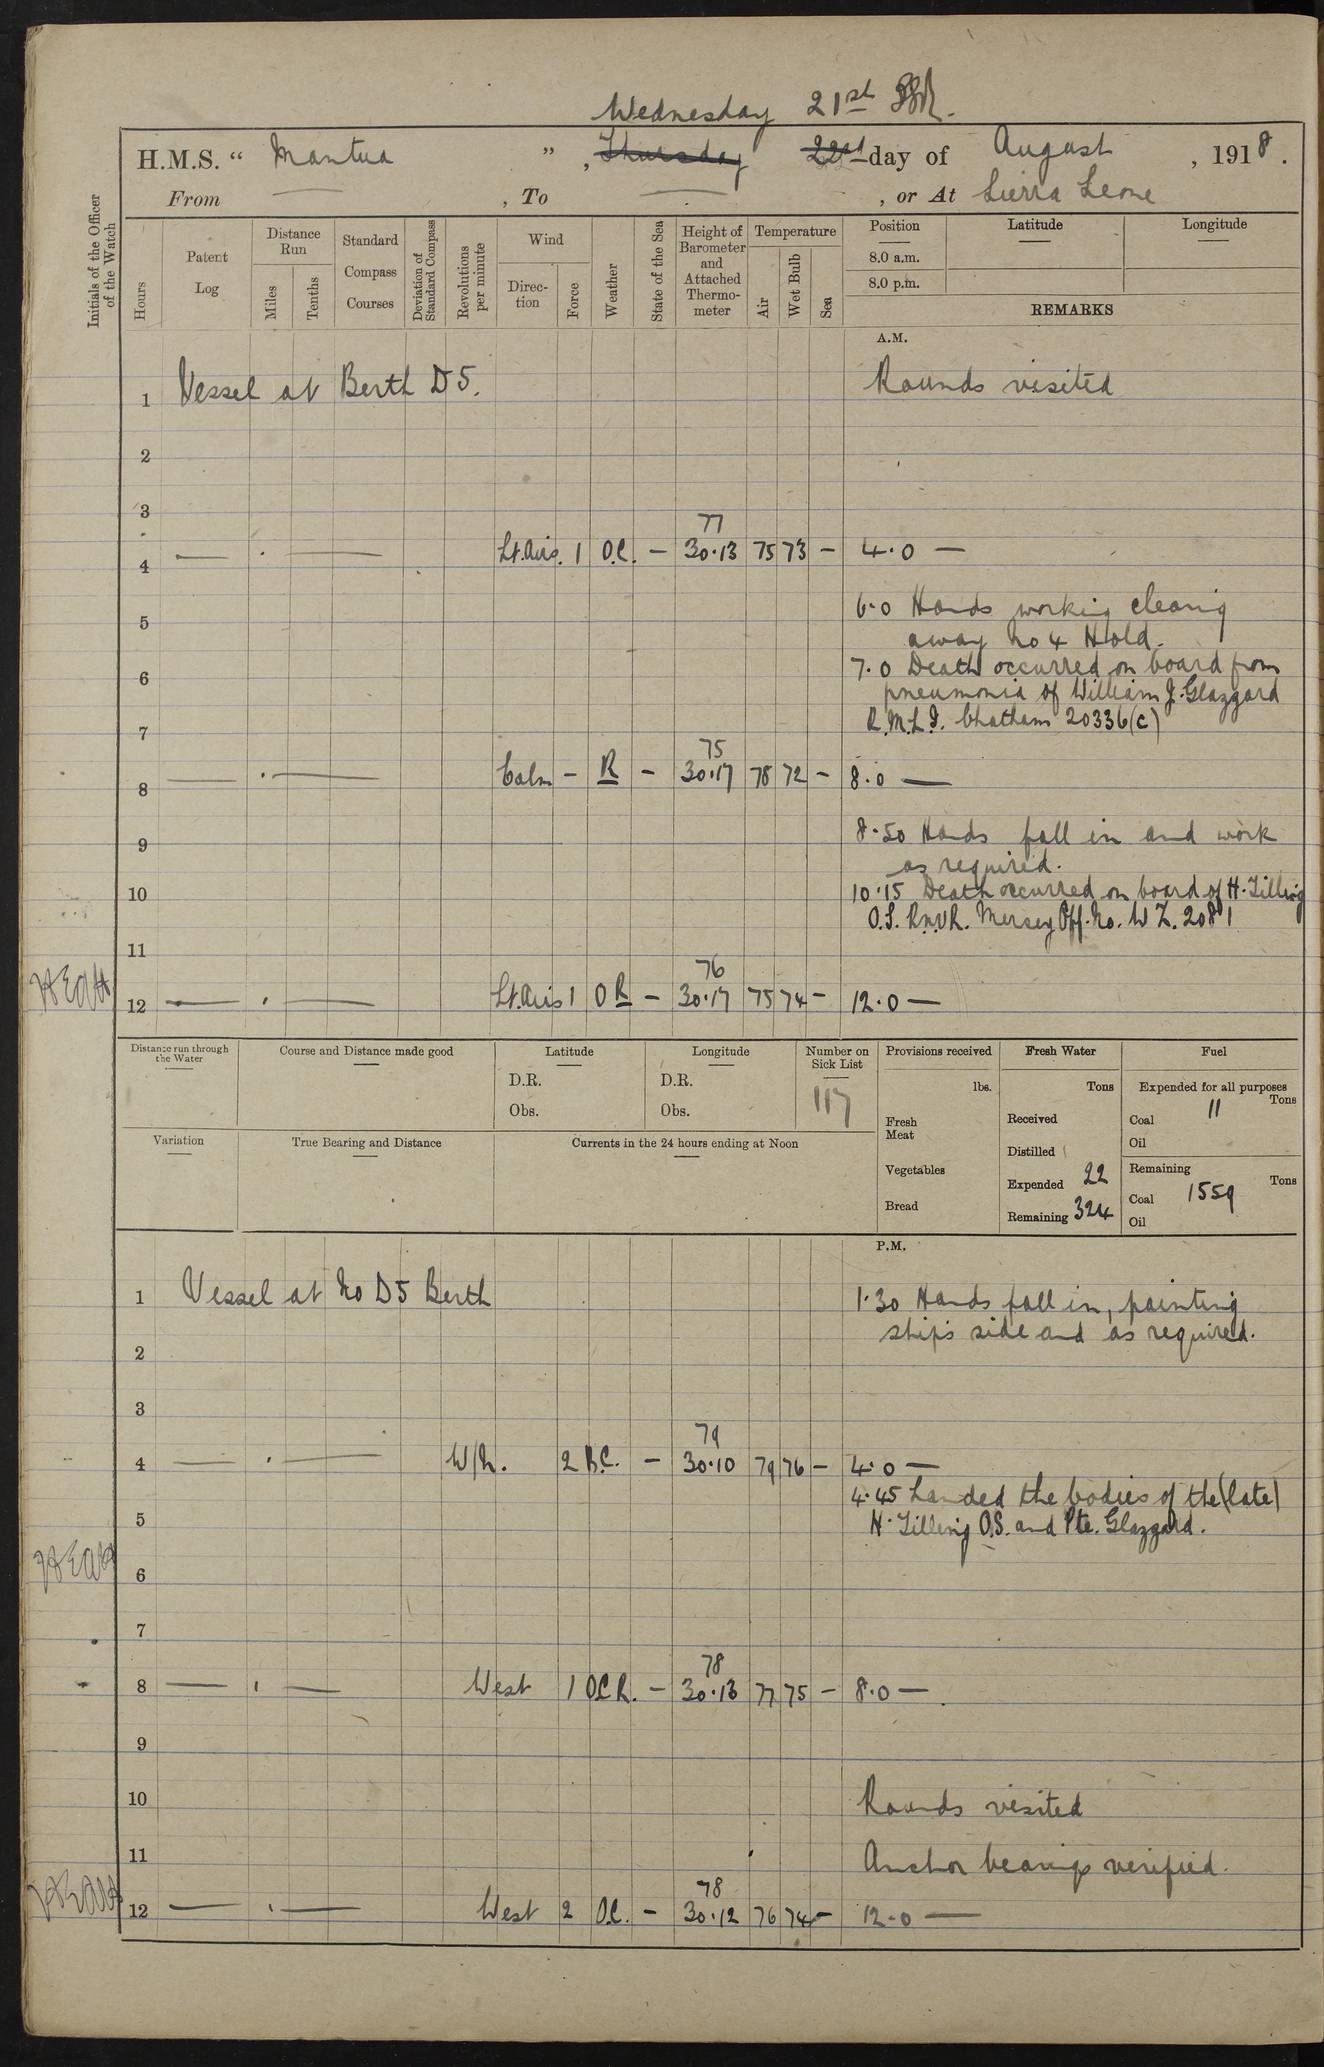 Wednesday 21st
H.M.S. “ Mantua ” , Thursday 22nd day of August , 1918 .
From — , To — , or At Sierra Leone
Initials of the Officer of the Watch
Hours
Patent Log
Distance Run
Miles
Tenths
Standard Compass Courses
Deviation of Standard Compass
Revolutions per minute
Wind
Direction
Force
Weather
State of the Sea
Height of Barometer and Attached Thermometer
Temperature
Air
Wet Bulb
Sea
Position
8.0 a.m.
8.0 p.m.
Latitude
Longitude
REMARKS
A.M.
1 Vessel at Berth D5. Rounds visited
2
3
77
4 — . — Lt. Airs. 1 O.C. — 30.13 75 73 — 4.0 —
5 6.0 Hands working clearing
away No 4 Hold.
6 7.0 Death occurred on board from
pneumonia of William J. Glazzard
7 R.M.L.I. Chatham 20336(c)
75
8 — . — Calm — R — 30.17 78 72 — 8.0 —
9 8.50 Hands fall in and work
as required.
10 10.15 Death occurred on board of H. Tilling
O.S. R.N.V.R. Mersey Off. No. W Z. 2081
11
76
12 — . — Lt. Airs 1 O R — 30.17 75 74 — 12.0 —
Distance run through the Water
Course and Distance made good
Latitude
D.R.
Obs.
Longitude
D.R.
Obs.
Number on Sick List
117
Provisions received
lbs.
Fresh Meat
Vegetables
Bread
Fresh Water
Tons
Received
Distilled
Expended 22
Remaining 324
Fuel
Expended for all purposes
Tons
Coal 11
Oil
Remaining
Tons
Coal 1559
Oil
Variation
True Bearing and Distance
Currents in the 24 hours ending at Noon
P.M.
1 Vessel at No D5 Berth 1.30 Hands fall in, painting
ship's side and as required.
2
3
79
4 — . — W/N. 2 B.C. — 30.10 79 76 — 4.0 —
4.45 Landed the bodies of the (late)
5 H. Tilling O.S. and Pte. Glazzard.
6
7
78
8 — . — West 1 O.C.R. — 30.13 77 75 — 8.0 —
9
10 Rounds visited
11 Anchor bearings verified.
78
12 — . — West 2 O.C. — 30.12 76 74 — 12.0 —